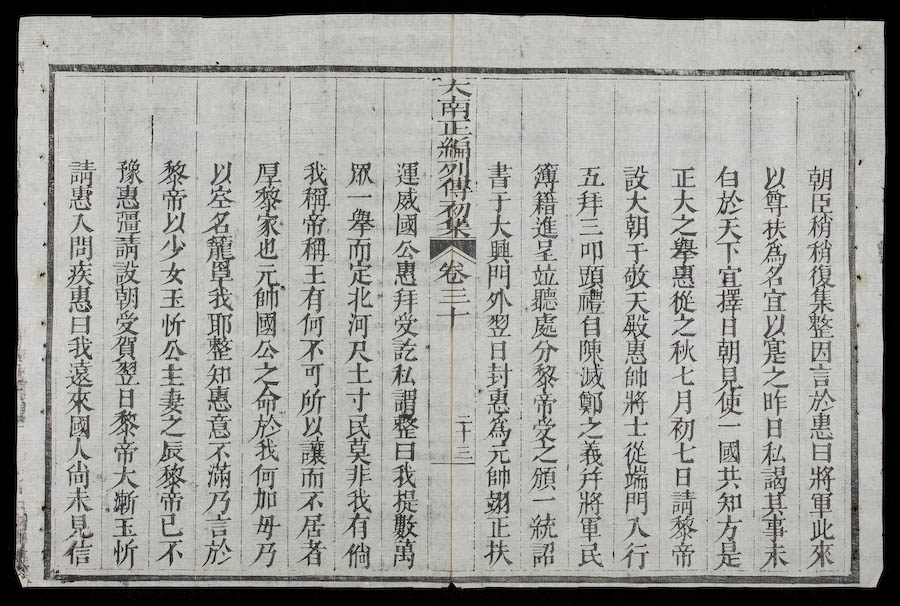 朝臣稍稍復集整因言於惠曰將軍此來
以尊扶爲名宜以寔之昨日私謁其事未
白於天下宜擇日朝見使一國共知方是
正大之舉惠從之秋七月初七日請黎帝
設大朝于敬天殿惠帥將士從端門入行
五拜三叩頭禮自陳滅鄭之義幷將軍民
簿籍進呈並聽處分黎帝受之頒一統詔
書于大興門外翌日封惠爲元帥翊正扶
大南正編列傳初集 卷三十 二十三
運威國公惠拜受訖私謂整曰我提數萬
眾一舉而定北河尺土寸民莫非我有倘
我稱帝稱王有何不可所以讓而不居者
厚黎家也元帥國公之命於我何加毋乃
以空名籠罩我耶整知惠意不滿乃言於
黎帝以少女玉忻公主妻之辰黎帝已不
豫惠彊請設朝受賀翌日黎帝大漸玉忻
請惠入問疾惠曰我遠來國人尙未見信